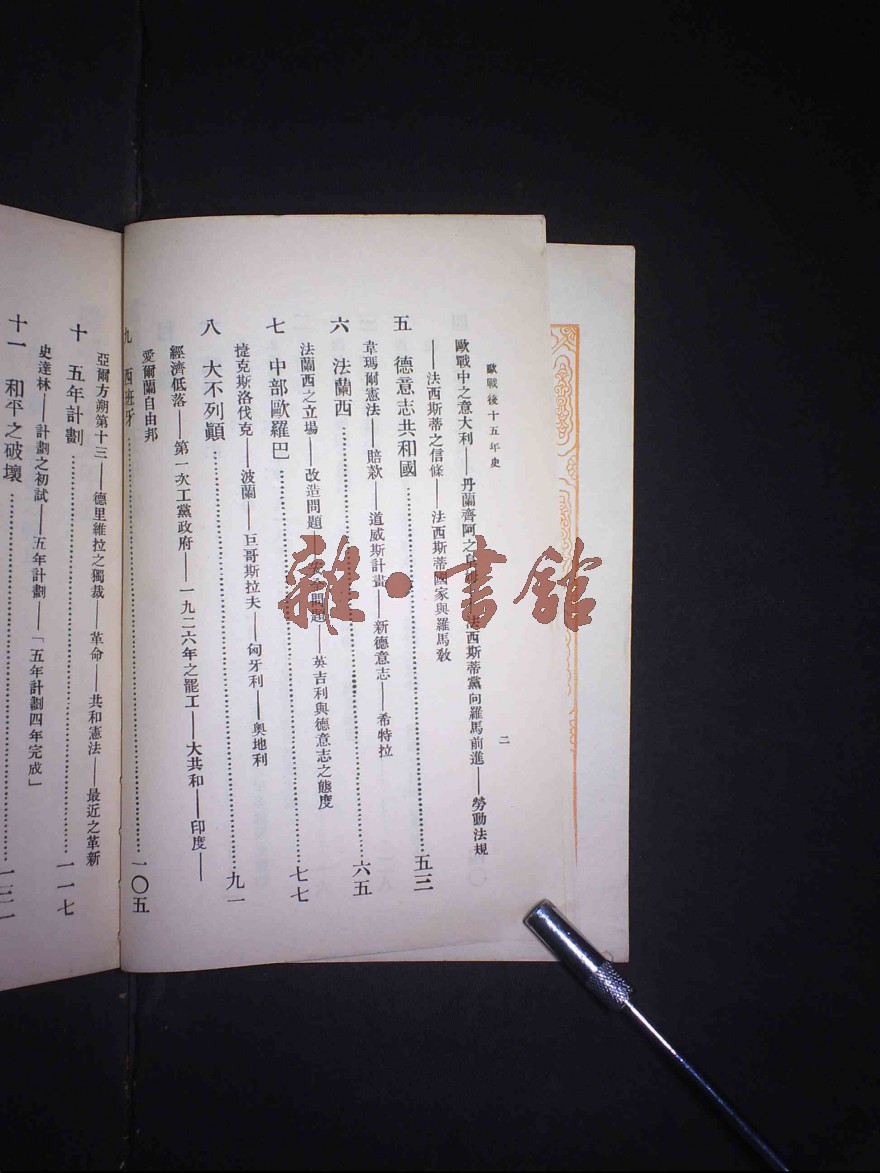 歐戰後十五年史
二
歐戰中之意大利——丹蘭齊阿之 法西斯蒂黨向羅馬前進——勞動法規
——法西斯蒂之信條——法西斯蒂國家與羅馬教
五 德意志共和國……五三
韋瑪爾憲法——賠款——道威斯計畫——新德意志——希特拉
六 法蘭西……六五
法蘭西之立場——改造問題——安全問題——英吉利與德意志之態度
七 中部歐羅巴……七七
捷克斯洛伐克——波蘭——巨哥斯拉夫——匈牙利——奧地利
八 大不列顛……九一
經濟低落——第一次工黨政府——一九二六年之罷工——大共和——印度——
愛爾蘭自由邦
九 西班牙……一〇五
亞爾方朔第十三——德里維拉之獨裁——革命——共和憲法——最近之革新
十 五年計劃……一一七
史達林——計劃之初試——五年計劃——「五年計劃四年完成」
十一 和平之破壞……一三一
雜·書館